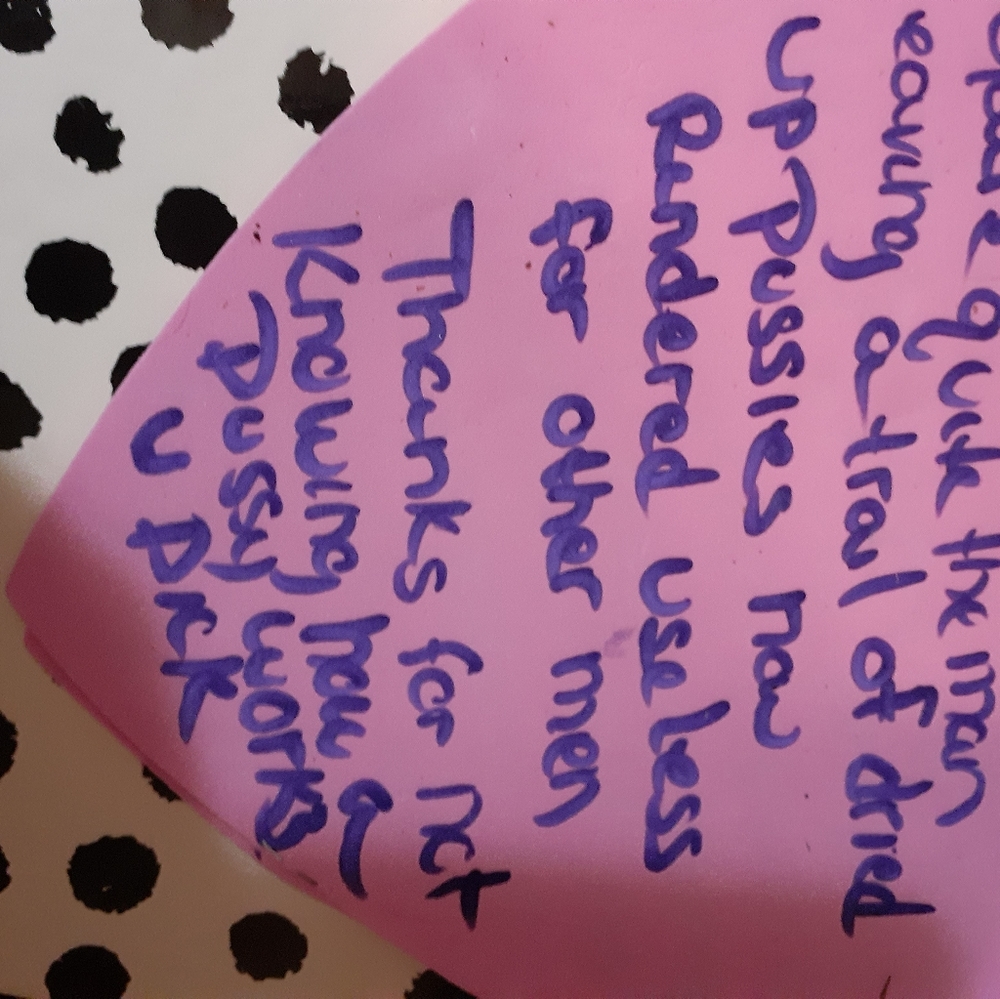 quite the man
leaving a trail of dried
up pussies now
Rendered useless
for other men
Thanks for not
Knowing how a
pussy works
U Dick